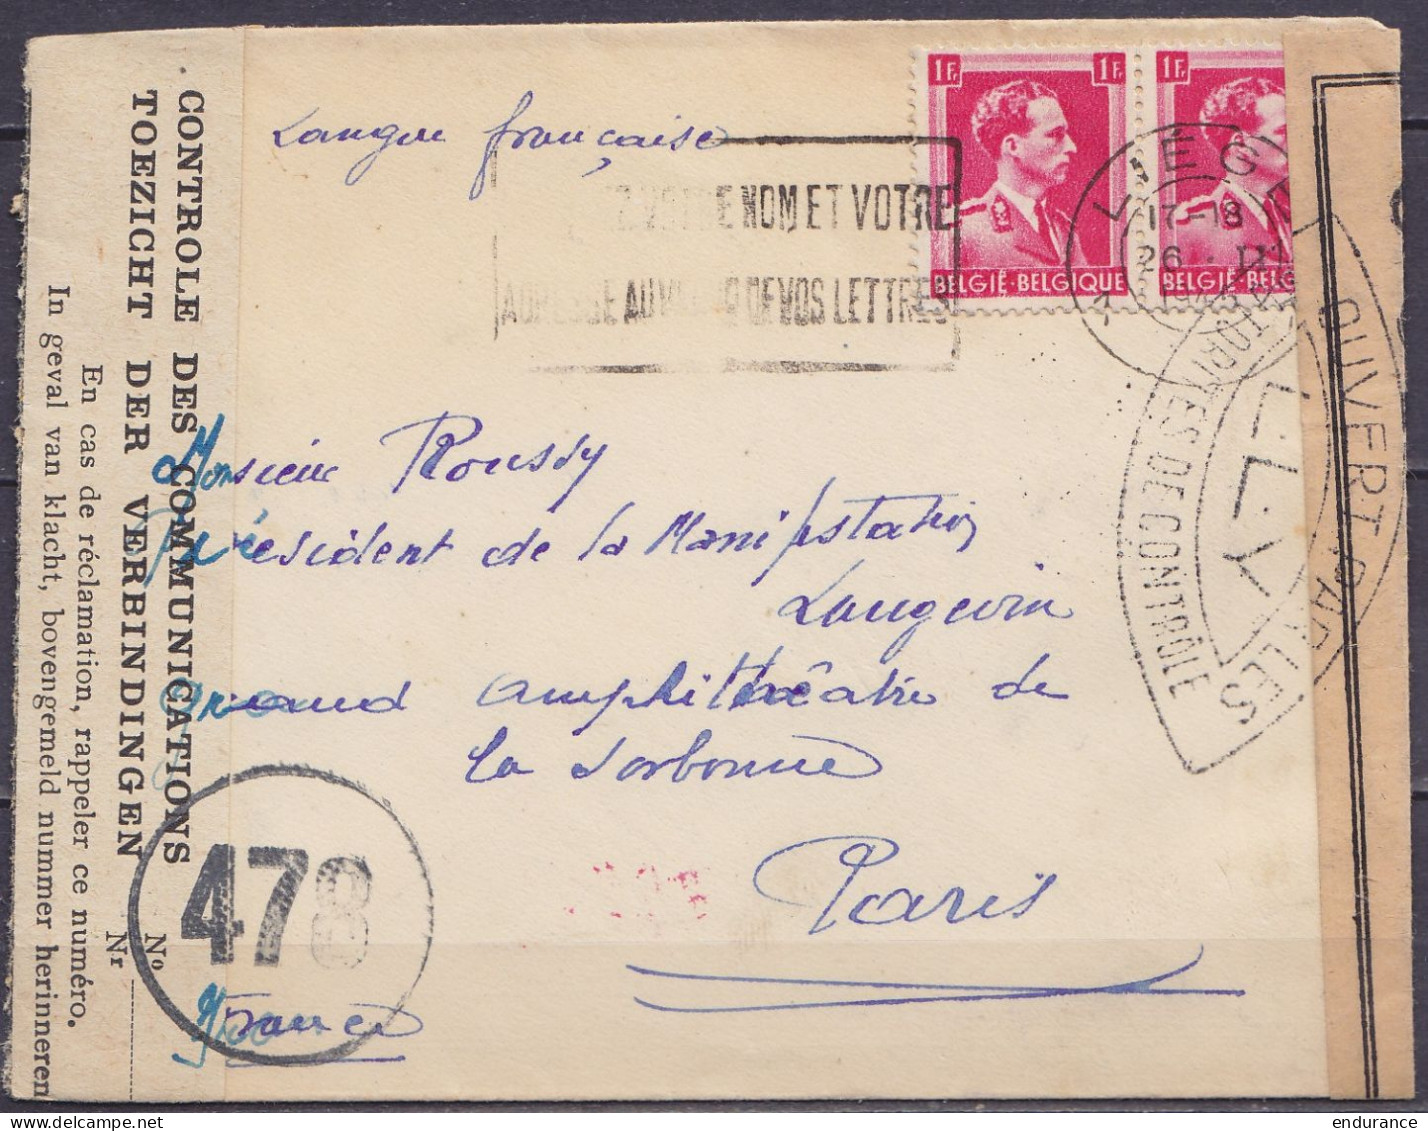 Langue française
1F. 1F. 1F.
BELGIË-BELGIQUE BELGIË-BELG
VOTRE NOM ET VOTRE
ADRESSE AU VERSO DE VOS LETTRES
LIÉGE 1
17-18
26 II
1945
OUVERT PAR LES
AUTORITÉS DE CONTRÔLE
Monsieur Roussy
Président de la Manifstation
Langevin
grand amphithéatre de
la Sorbonne
Paris
France
478
CONTROLE DES COMMUNICATIONS
TOEZICHT DER VERBINDINGEN
No
Nr
En cas de réclamation, rappeler ce numéro.
In geval van klacht, bovengemeld nummer herinneren
endurance
www.delcampe.net